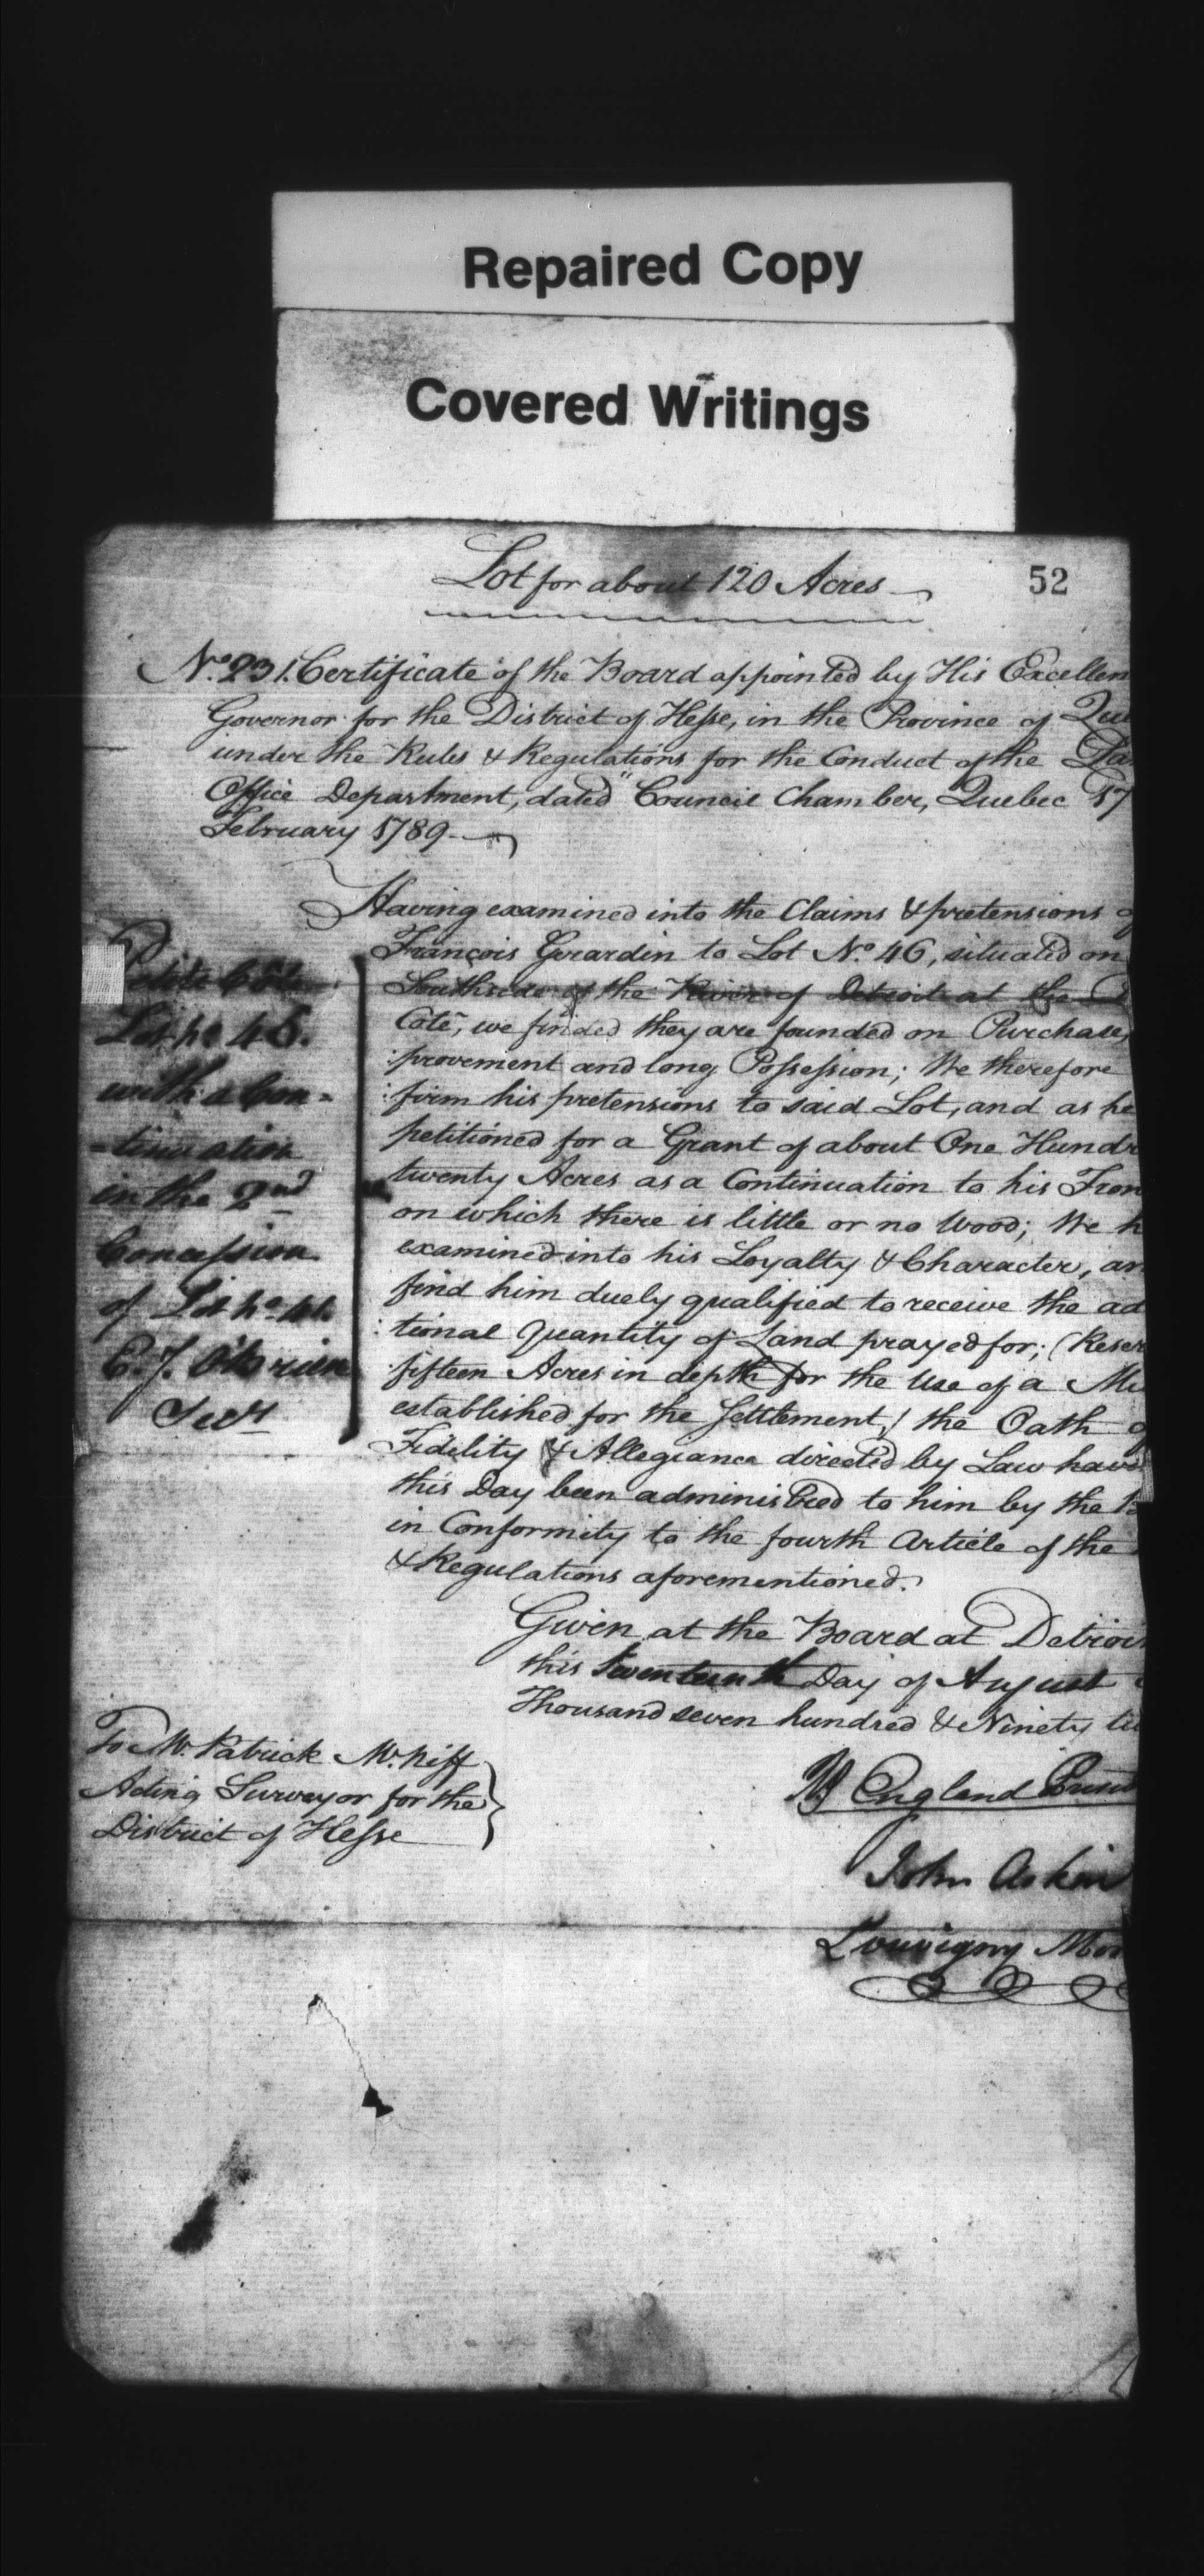 Repaired Copy
Covered Writings
Lot for about 120 Acres
52
No. 231. Certificate of the Board appointed by His Excellen
Governor for the District of Hesse, in the Province of Que
under the Rules & Regulations for the Conduct of the La
Office Department, dated "Council Chamber, Quebec 17
February 1789.
Having examined into the Claims & pretensions o
François Gerardin to Lot No. 46, situated on
Southside of the River of Detroit at the
Coté, we finded they are founded on Purchase,
:provement and long Possession; We therefore
:firm his pretensions to said Lot, and as he
petitioned for a Grant of about One Hundr
twenty Acres as a Continuation to his Fron
on which there is little or no Wood; We h
examined into his Loyalty & Character, an
find him duely qualified to receive the ad
:tional Quantity of Land prayed for; (Reser
fifteen Acres in depth for the Use of a Mi
established for the Settlement,) the Oath o
Fidelity & Allegiance directed by Law have
this Day been administred to him by the B
in Conformity to the fourth Article of the
& Regulations aforementioned.
Given at the Board at Detroit
this Seventeenth Day of August
Thousand seven hundred & Ninety
Petite Côte
Lot no 46.
with a Con=
=tinuation
in the 2nd
Concession
of Lot no 46.
C. J. O'Brien
Secy
To Mr. Patrick McNiff
Acting Surveyor for the
District of Hesse
England
John Askin
Louvigny Mon